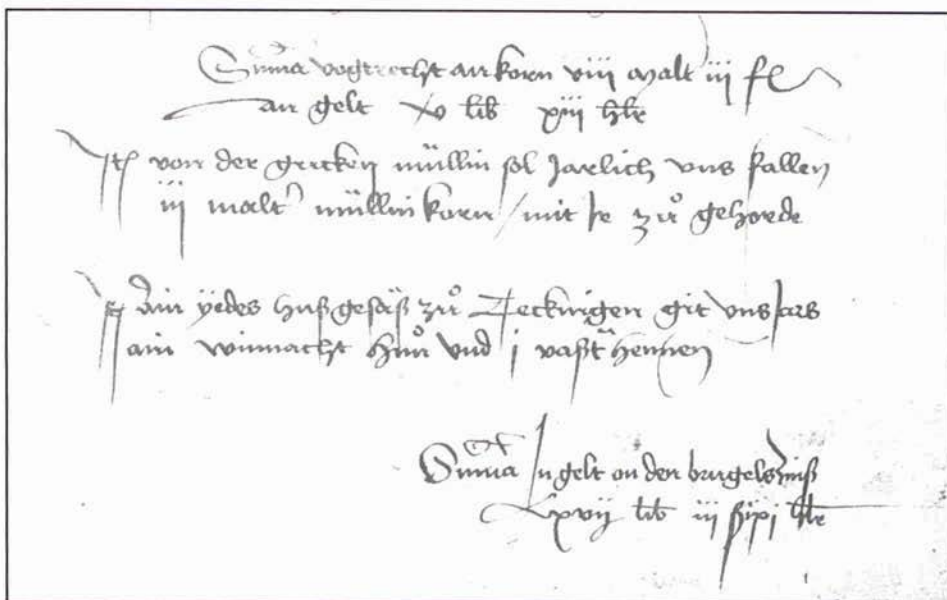 Suma vogtrecht an korn viii malt iii fl
an gelt xv lib xiii hlr
Jt von der gricken müllin sol Jarlich vns fallen
iii malt müllin korn / mit Je zů gehorde
Jt Ain yedes hußgesäß zů Teckingen git vns Jars
ain winnacht hůn vnd j vaßt hennen
Suma In gelt on den burgelszinß
Lxvij lib iii ß ixj hlr